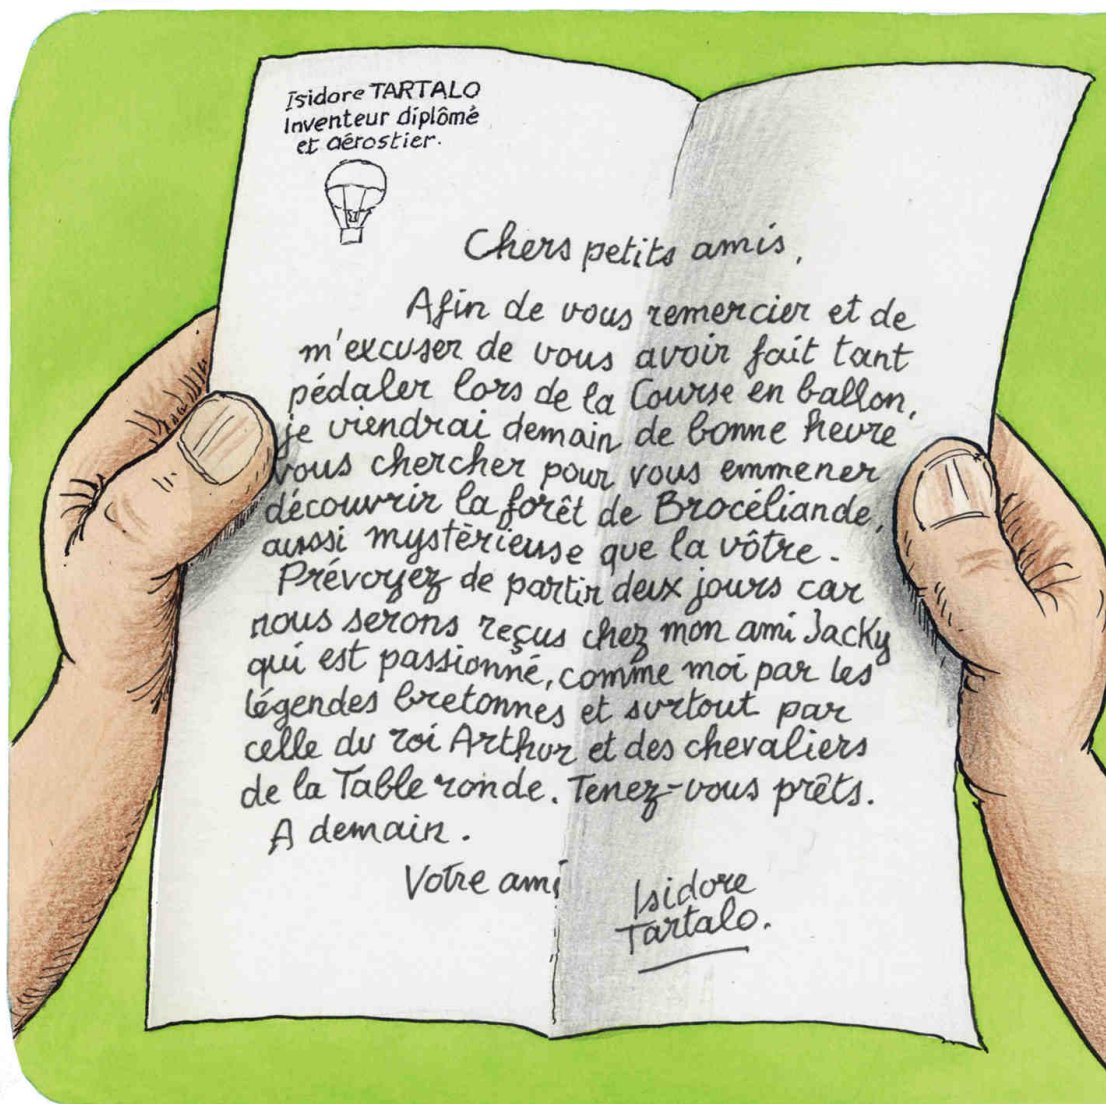 Isidore TARTALO
Inventeur diplômé
et aérostier.
Chers petits amis,
Afin de vous remercier et de
m'excuser de vous avoir fait tant
pédaler lors de la Course en ballon,
je viendrai demain de bonne heure
vous chercher pour vous emmener
découvrir la forêt de Brocéliande,
aussi mystérieuse que la vôtre.
Prévoyez de partir deux jours car
nous serons reçus chez mon ami Jacky
qui est passionné, comme moi par les
légendes bretonnes et surtout par
celle du roi Arthur et des chevaliers
de la Table ronde. Tenez-vous prêts.
A demain.
Votre ami
Isidore
Tartalo.